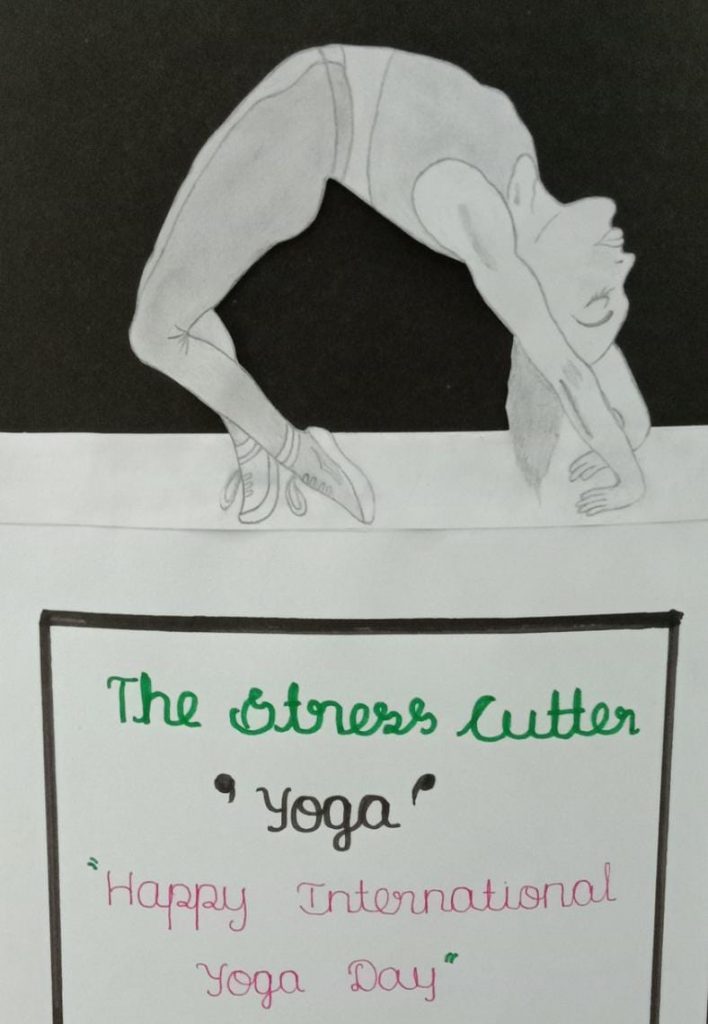 The Stress Cutter
'Yoga'
"Happy International
Yoga Day"